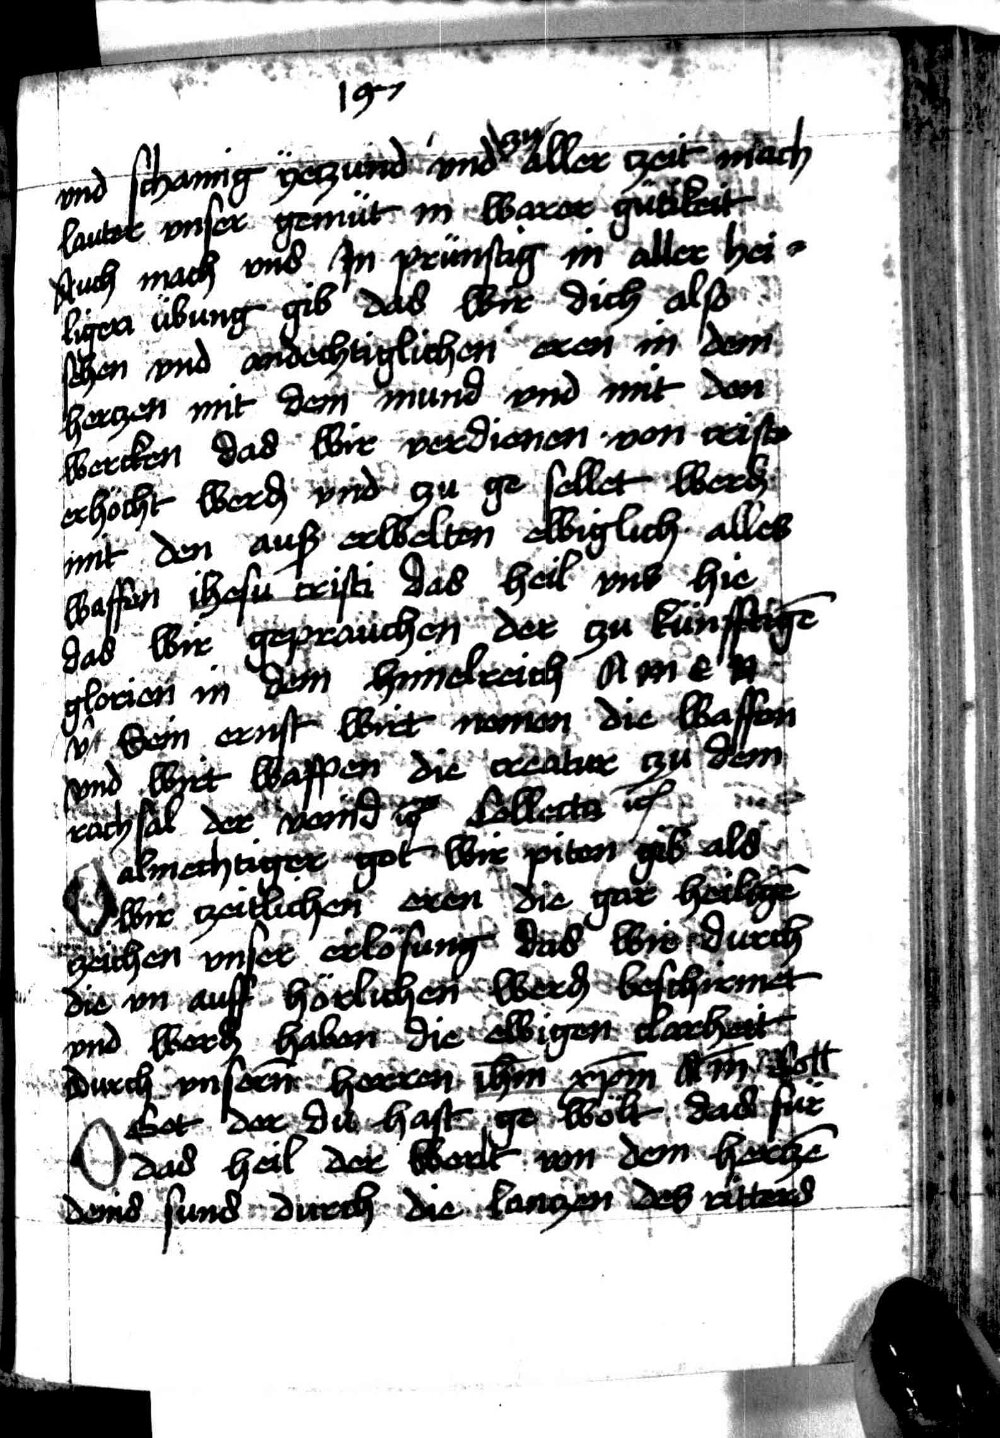 197
vnd schamig yeczund vnd zu aller czeit mach
lauter vnser gemüt in warer gütikeit
Auch mach vns In prünstig in aller hei-
ligen übung gib das wir dich also
sehen vnd andechtiglichen eren in dem
herczen mit dem mund vnd mit den
wercken das wir verdienen von cristo
erhöcht werdn vnd czu ge sellet werdn
mit den auß erwelten ewiglich alles
waffen ihesu cristi das heil vns hie
das wir geprauchen der czu künfftigē
glorien in dem himelreich A m e n
v Sein ernst wirt nemen die waffen
vnd wirt waffen die creatur czu dem
rachsal der veind Collecta
O almechtiger got wir piten gib als
wir czeitlichen eren die gar heiligē
czeichen vnser erlösung das wir durch
die vn auff hörlichen werdn beschirmet
vnd werdn haben die ewigen clarheit
durch vnsern herren ihm xpm Am Coll
O Got der du hast ge wölt das für
das heil der werlt von dem herczē
deins suns durch die lanczen des ritters